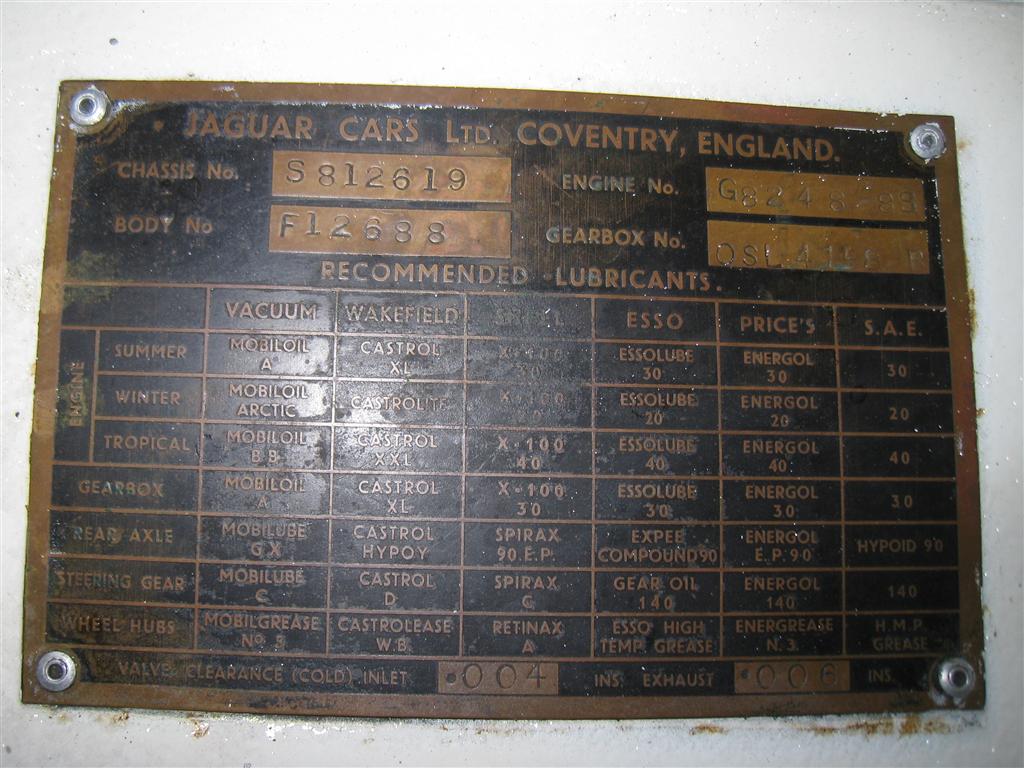 JAGUAR CARS LTD. COVENTRY, ENGLAND.
CHASSIS No. S812619 ENGINE No.
BODY No F12688 GEARBOX No.
RECOMMENDED LUBRICANTS.
VACUUM WAKEFIELD ESSO PRICE'S S.A.E.
ENGINE
SUMMER MOBILOIL A CASTROL XL X-100 30 ESSOLUBE 30 ENERGOL 30 30
WINTER MOBILOIL ARCTIC CASTROLITE X-100 ESSOLUBE 20 ENERGOL 20 20
TROPICAL MOBILOIL B.B. CASTROL XXL X-100 40 ESSOLUBE 40 ENERGOL 40 40
GEARBOX MOBILOIL A CASTROL XL X-100 30 ESSOLUBE 30 ENERGOL 30 30
REAR AXLE MOBILUBE G.X CASTROL HYPOY SPIRAX 90.E.P. EXPEE COMPOUND 90 ENERGOL E.P. 90 HYPOID 90
STEERING GEAR MOBILUBE C CASTROL D SPIRAX C GEAR OIL 140 ENERGOL 140 140
WHEEL HUBS MOBILGREASE No. 3 CASTROLEASE W.B. RETINAX A ESSO HIGH TEMP. GREASE ENERGREASE N. 3. H.M.P. GREASE
VALVE CLEARANCE (COLD) INLET .004 INS EXHAUST .006 INS.